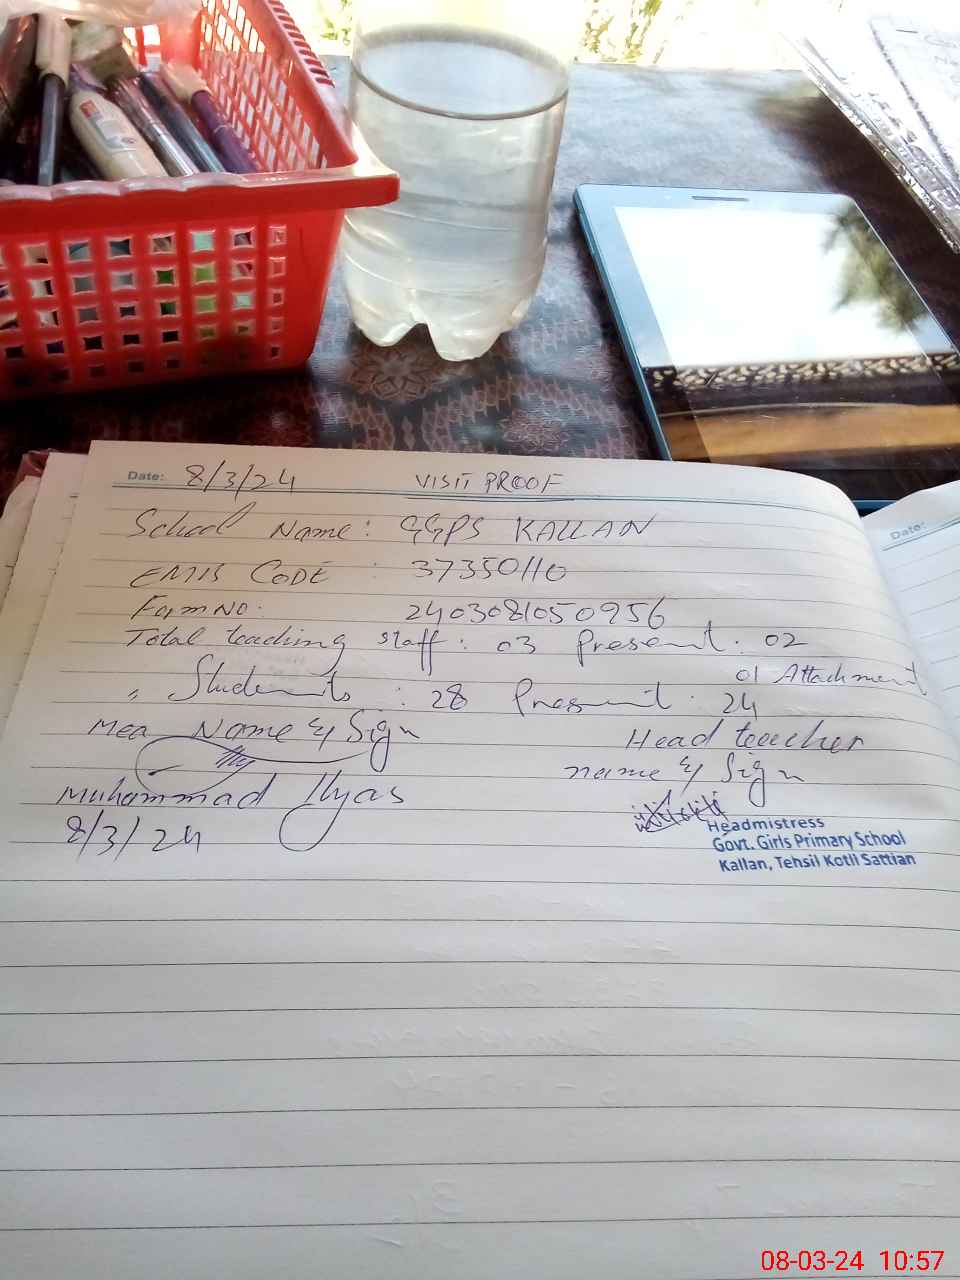 Date: 8/3/24 VISIT PROOF
School Name: GGPS KALLAN
EMIS CODE : 37350110
Form No. 2403081050956
Total teaching staff: 03 Present: 02
01 Attachment
" Students : 28 Present: 24
Mea Name & Sign
Head teacher
name & Sign
Muhammad Ilyas
8/3/24
Headmistress
Govt. Girls Primary School
Kallan, Tehsil Kotli Sattian
Date:
08-03-24 10:57